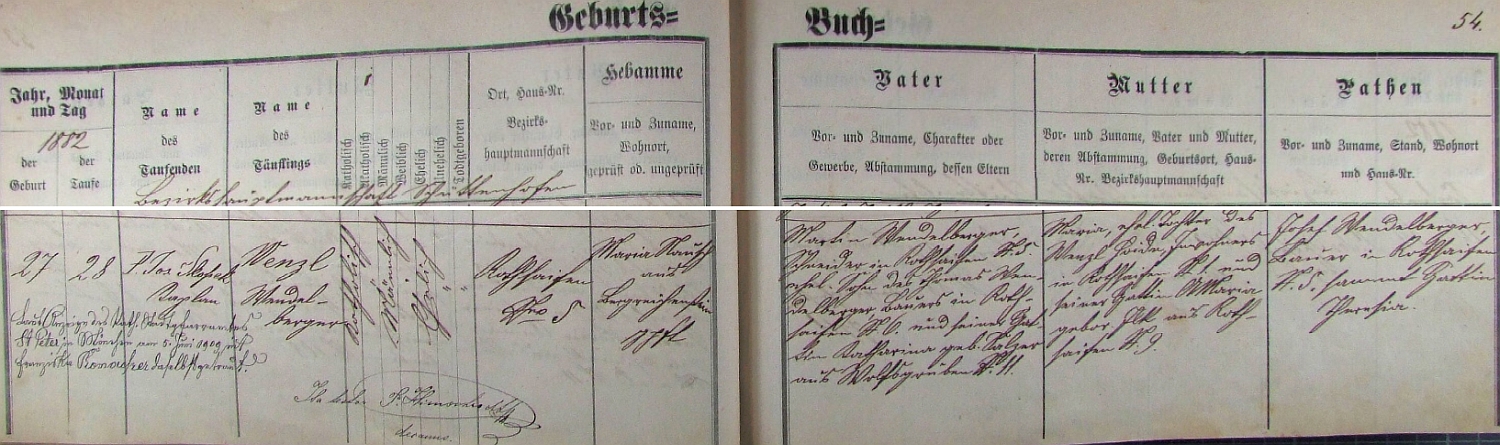 Geburts=
Buch=
54.
Jahr, Monat
und Tag
1882
der
Geburt
der
Taufe
Name
des
Taufenden
Name
des
Täuflings
Katholisch
Akatholisch
Männlich
Weiblich
Ehelich
Unehelich
Todtgeboren
Ort, Haus-Nr.
Bezirks-
hauptmannschaft
Hebamme
Vor- und Zuname,
Wohnort,
geprüft od. ungeprüft
Vater
Vor- und Zuname, Charakter oder
Gewerbe, Abstammung, dessen Eltern
Mutter
Vor- und Zuname, Vater und Mutter,
deren Abstammung, Geburtsort, Haus-
Nr. Bezirkshauptmannschaft
Pathen
Vor- und Zuname, Stand, Wohnort
und Haus-Nr.
Bezirkshauptmannschaft Schüttenhofen
27
28
P. Jos.
Kaplan
Wenzl
Wendel-
berger
Katholisch
Männlich
Ehelich
Rothsaifen
Nro 5
Maria
aus
Bergreichenstein
gepft
Martin Wendelberger,
Schneider in Rothsaifen N. 5
ehel. Sohn des Thomas Wen-
delberger Bauers in Roth-
saifen N. 6. und seiner Gat-
tin Katharina geb.
aus Wolfsgruben N. 11.
Maria, ehel. Tochter des
Wenzl Haida, Inwohners
in Rothsaifen N. 1. und
seiner Gattin AMaria
gebor. aus Roth-
saifen N. 9.
Josef Wendelberger,
Bauer in Rothsaifen
N. 5. sammt Gattin
Theresia.
Laut Anzeige des kath. Stadtpfarramtes
St Peter in München am 5. Juni 1909 mit
Franziska daselbst getraut.
decanus.